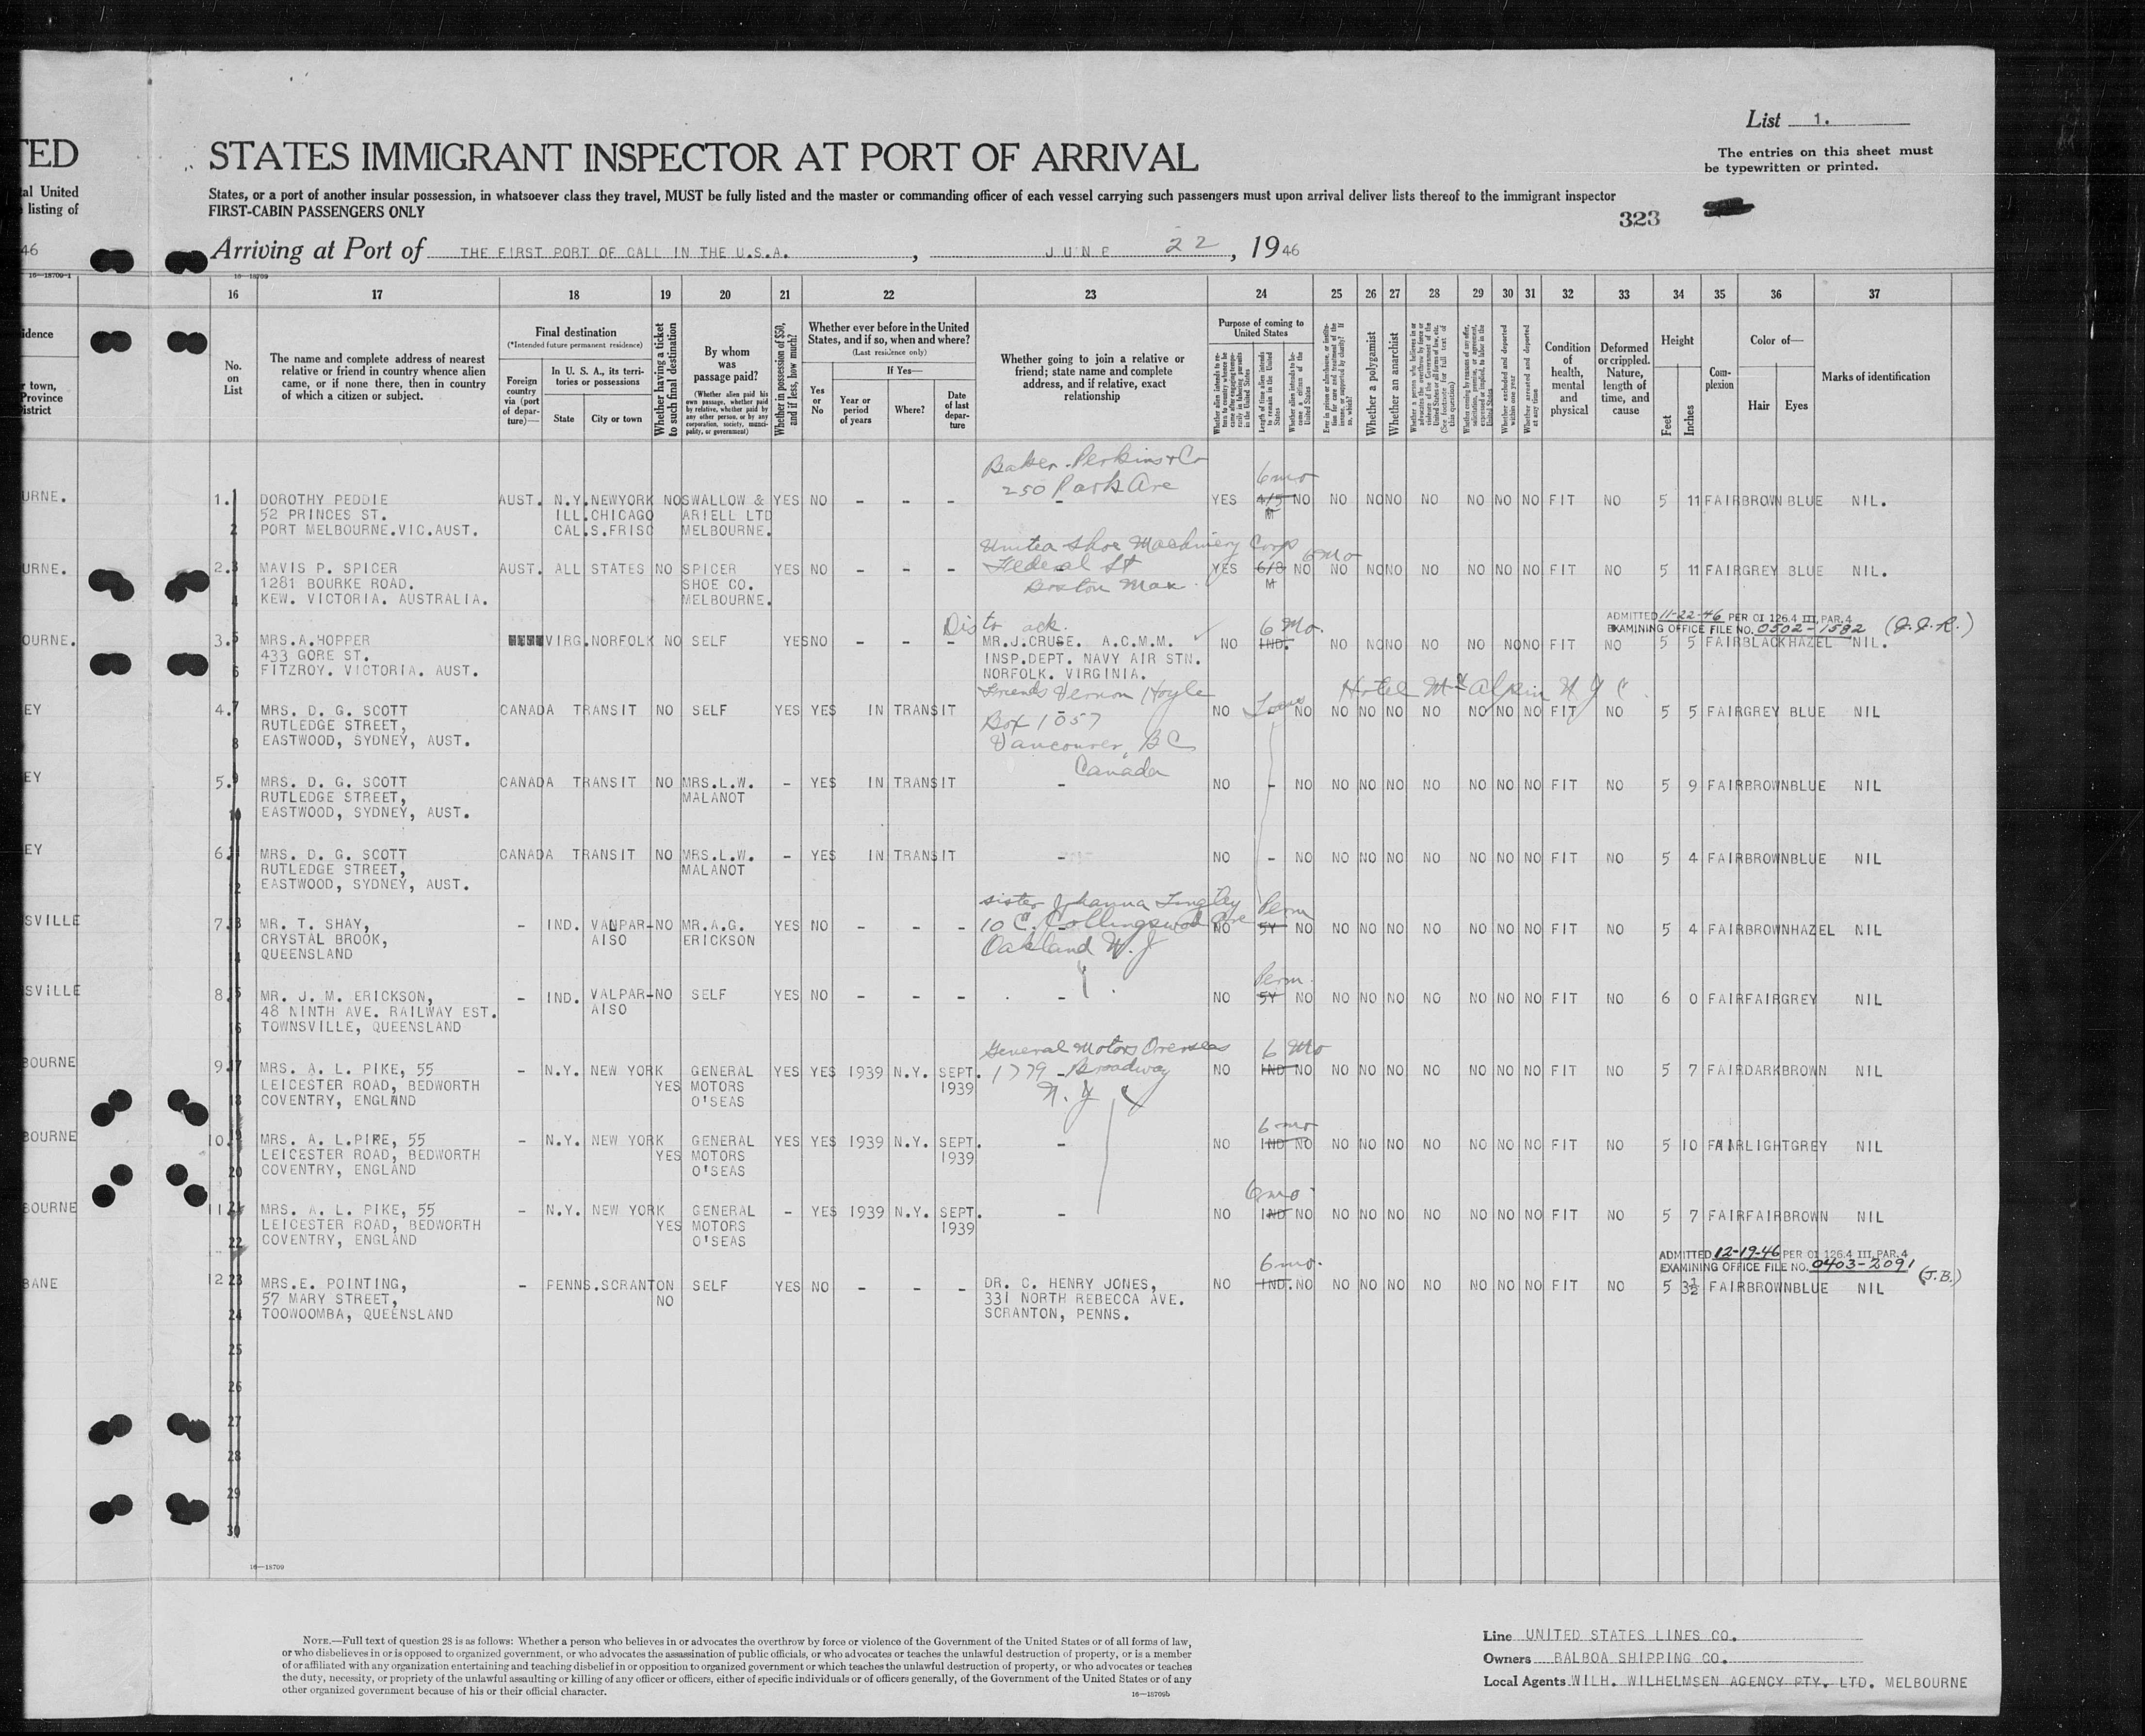 List 1.
TED STATES IMMIGRANT INSPECTOR AT PORT OF ARRIVAL
The entries on this sheet must
be typewritten or printed.
tal United States, or a port of another insular possession, in whatsoever class they travel, MUST be fully listed and the master or commanding officer of each vessel carrying such passengers must upon arrival deliver lists thereof to the immigrant inspector
listing of FIRST-CABIN PASSENGERS ONLY
323
46 Arriving at Port of THE FIRST PORT OF CALL IN THE U.S.A. , JUNE 22 , 1946
16—18709-1 16—18709
16 17 18 19 20 21 22 23 24 25 26 27 28 29 30 31 32 33 34 35 36 37
idence
r town,
Province
istrict
No. on List
The name and complete address of nearest
relative or friend in country whence alien
came, or if none there, then in country
of which a citizen or subject.
Final destination
(*Intended future permanent residence)
Foreign country via (port of departure)—
In U. S. A., its territories or possessions
State City or town
Whether having a ticket to such final destination
By whom was passage paid?
(Whether alien paid his own passage, whether paid by relative, whether paid by any other person, or by any corporation, society, municipality, or government)
Whether in possession of $50, and if less, how much?
Whether ever before in the United States, and if so, when and where?
(Last residence only)
Yes or No
If Yes—
Year or period of years Where? Date of last departure
Whether going to join a relative or
friend; state name and complete
address, and if relative, exact
relationship
Purpose of coming to United States
Length of time alien intends to remain in the United States
Whether alien intends to become a citizen of the United States
Whether a polygamist
Whether an anarchist
Whether excluded and deported within one year
Whether arrested and deported at any time
Condition of health, mental and physical
Deformed or crippled. Nature, length of time, and cause
Height
Feet Inches
Complexion
Color of—
Hair Eyes
Marks of identification
Baker Perkins & Co 6 mo
250 Park Ave
URNE. 1. DOROTHY PEDDIE AUST. N.Y. NEWYORK NO SWALLOW & YES NO - - - - YES 4/5 NO NO NO NO NO NO NO NO FIT NO 5 11 FAIR BROWN BLUE NIL.
52 PRINCES ST. ILL. CHICAGO ARIELL LTD M
PORT MELBOURNE.VIC.AUST. CAL. S.FRISC MELBOURNE.
United Shoe Machinery Corp 6 mo
URNE. 2. MAVIS P. SPICER AUST. ALL STATES NO SPICER YES NO - - - Federal St YES 6/8 NO NO NO NO NO NO NO NO FIT NO 5 11 FAIR GREY BLUE NIL.
1281 BOURKE ROAD. SHOE CO. Boston Mass. M
KEW. VICTORIA. AUSTRALIA. MELBOURNE.
ADMITTED 11-22-46 PER OI 126.4 III PAR. 4
Dis to ack. 6 Mo. EXAMINING OFFICE FILE NO. 0502-1582 (J.J.R.)
OURNE. 3. MRS.A.HOPPER VIRG. NORFOLK NO SELF YES NO - - - MR.J.CRUSE. A.C.M.M. NO IND. NO NO NO NO NO NO NO FIT NO 5 5 FAIR BLACK HAZEL NIL.
433 GORE ST. INSP.DEPT. NAVY AIR STN.
FITZROY. VICTORIA. AUST. NORFOLK. VIRGINIA.
Friends Vernon Hoyle Hotel McAlpin N Y C
EY 4. MRS. D. G. SCOTT CANADA TRANSIT NO SELF YES YES IN TRANSIT NO NO NO NO NO NO NO NO NO FIT NO 5 5 FAIR GREY BLUE NIL
RUTLEDGE STREET, Box 1057
EASTWOOD, SYDNEY, AUST. Vancouver, BC
Canada
EY 5. MRS. D. G. SCOTT CANADA TRANSIT NO MRS.L.W. - YES IN TRANSIT - NO - NO NO NO NO NO NO NO NO FIT NO 5 9 FAIR BROWN BLUE NIL
RUTLEDGE STREET, MALANOT
EASTWOOD, SYDNEY, AUST.
EY 6. MRS. D. G. SCOTT CANADA TRANSIT NO MRS.L.W. - YES IN TRANSIT - NO - NO NO NO NO NO NO NO NO FIT NO 5 4 FAIR BROWN BLUE NIL
RUTLEDGE STREET, MALANOT
EASTWOOD, SYDNEY, AUST.
sister Johanna Langley Perm
SVILLE 7. MR. T. SHAY, - IND. VALPAR- NO MR.A.G. YES NO - - - 10 E. Collingswood Ave NO 5Y NO NO NO NO NO NO NO NO FIT NO 5 4 FAIR BROWN HAZEL NIL
CRYSTAL BROOK, AISO ERICKSON Oakland N. J
QUEENSLAND
Perm
SVILLE 8. MR. J. M. ERICKSON, - IND. VALPAR- NO SELF YES NO - - - - NO 5Y NO NO NO NO NO NO NO NO FIT NO 6 0 FAIR FAIR GREY NIL
48 NINTH AVE. RAILWAY EST. AISO
TOWNSVILLE, QUEENSLAND
General Motors Overseas 6 Mo
BOURNE 9. MRS. A. L. PIKE, 55 - N.Y. NEW YORK GENERAL YES YES 1939 N.Y. SEPT. 1779 - Broadway NO IND NO NO NO NO NO NO NO NO FIT NO 5 7 FAIR DARK BROWN NIL
LEICESTER ROAD, BEDWORTH YES MOTORS 1939 N. Y
COVENTRY, ENGLAND O'SEAS
6 mo
BOURNE 10. MRS. A. L.PIKE, 55 - N.Y. NEW YORK GENERAL YES YES 1939 N.Y. SEPT. - NO IND NO NO NO NO NO NO NO NO FIT NO 5 10 FAIR LIGHT GREY NIL
LEICESTER ROAD, BEDWORTH YES MOTORS 1939
COVENTRY, ENGLAND O'SEAS
6 mo
BOURNE 11. MRS. A. L. PIKE, 55 - N.Y. NEW YORK GENERAL - YES 1939 N.Y. SEPT. - NO IND NO NO NO NO NO NO NO NO FIT NO 5 7 FAIR FAIR BROWN NIL
LEICESTER ROAD, BEDWORTH YES MOTORS 1939
COVENTRY, ENGLAND O'SEAS
ADMITTED 12-19-46 PER OI 126.4 III PAR. 4
6 mo. EXAMINING OFFICE FILE NO. 0403-2091 (J.B.)
BANE 12 MRS.E. POINTING, - PENNS. SCRANTON SELF YES NO - - - DR. C. HENRY JONES, NO IND. NO NO NO NO NO NO NO NO FIT NO 5 3½ FAIR BROWN BLUE NIL
57 MARY STREET, NO 331 NORTH REBECCA AVE.
TOOWOOMBA, QUEENSLAND SCRANTON, PENNS.
25
26
27
28
29
30
16—18709
NOTE.—Full text of question 28 is as follows: Whether a person who believes in or advocates the overthrow by force or violence of the Government of the United States or of all forms of law,
or who disbelieves in or is opposed to organized government, or who advocates the assassination of public officials, or who advocates or teaches the unlawful destruction of property, or is a member
of or affiliated with any organization entertaining and teaching disbelief in or opposition to organized government or which teaches the unlawful destruction of property, or who advocates or teaches
the duty, necessity, or propriety of the unlawful assaulting or killing of any officer or officers, either of specific individuals or of officers generally, of the Government of the United States or of any
other organized government because of his or their official character.
16—18709b
Line UNITED STATES LINES CO.
Owners BALBOA SHIPPING CO.
Local Agents WILH. WILHELMSEN AGENCY PTY. LTD. MELBOURNE